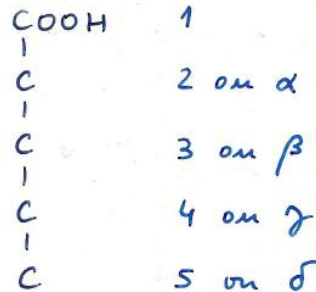 COOH 1
C 2 ou α
C 3 ou β
C 4 ou γ
C 5 ou δ